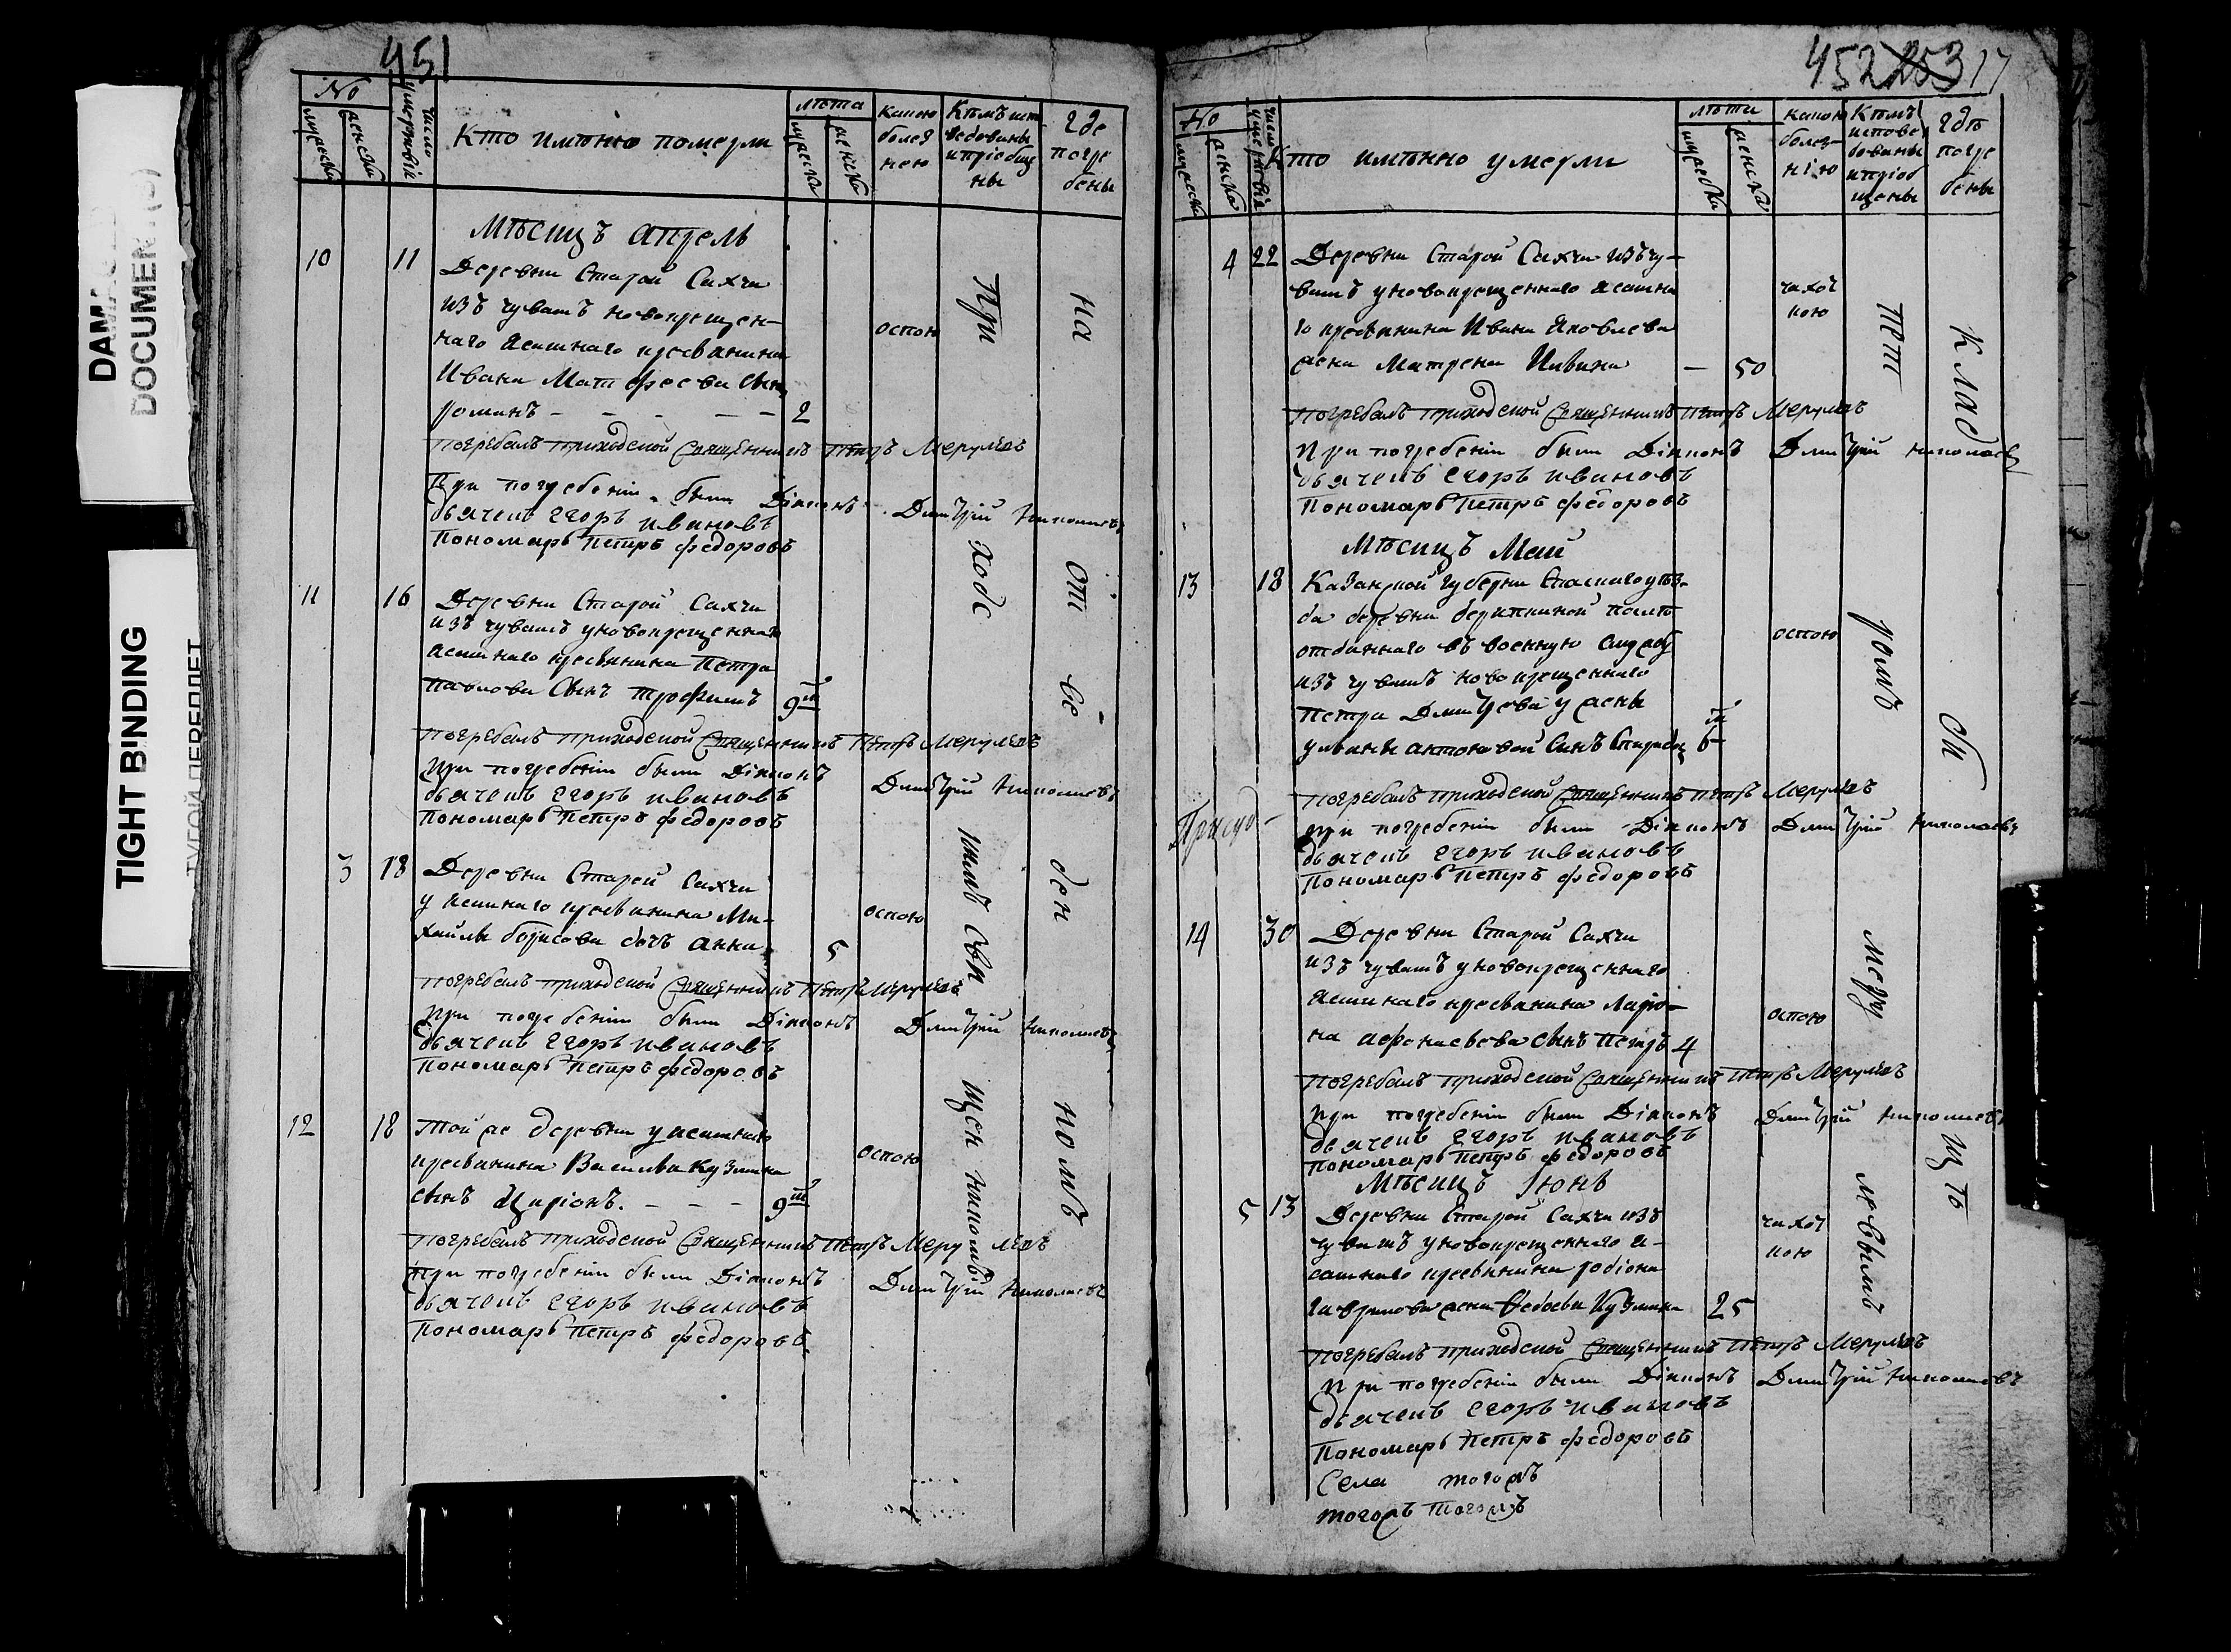 DAMAGED
DOCUMENT(S)
TIGHT BINDING
ТУГОЙ ПЕРЕПЛЕТ
451
No
мужеска
женска
число умершвiи
Кто имѣнно померли
лѣта
мужеска
женска
какою болезнею
Кѣмъ исповедованы и прiобщены
где погребены
Мѣсицъ апрель
10 11 Деревни Старой Сахчи
изъ чувашъ новокрещен-
наго ясашнаго кресьянина
Ивана Матфеева сынъ
романъ - - - - - 2
оспою
погребалъ приходской Священникъ Петръ Мерулевъ
При погребенiи были Дiаконъ Дмитрiй Николаевъ
дьячекъ Егоръ ивановъ
Пономарь Петръ федоровъ
11 16 Деревни Старой Сахчи
изъ чувашъ у новокрещеннаго
ясашнаго кресьянина Петра
Павлова Сынъ трофимъ 9
погребалъ приходской Священникъ Петръ Мерулевъ
при погребенiи были Дiаконъ Дмитрiй Николаевъ
дьячекъ Егоръ ивановъ
Пономарь Петръ федоровъ
3 18 Деревни Старой Сахчи
у ясашнаго кресьянина Ми-
хайлы борисова дочь анна 5
оспою
погребалъ приходской Священникъ Петръ Мерулевъ
при погребенiи были Дiаконъ Дмитрiй Николаевъ
дьячекъ Егоръ ивановъ
Пономарь Петръ федоровъ
12 18 той же деревни у ясашнаго
кресьянина Василья Кузмина
сынъ - - - 9
оспою
погребалъ приходской Священникъ Петръ Мерулевъ
При погребенiи были Дiаконъ Дмитрiй Николаевъ
дьячекъ Егоръ ивановъ
Пономарь Петръ федоровъ
При ходс кимъ свя щен никомъ
на от ве ден номъ
452 253 17
No
мужеска
женска
число умершвiи
Кто имѣнно умерли
лѣта
мужеска
женска
какою болезнiю
Кѣмъ исповедованы и прiобщены
гдѣ погребены
4 22 Деревни Старой Сахчи изъ чу-
вашъ у новокрещеннаго ясашна
го кресьянина Ивана Яковлева
жена Матрена Ивана — 50
чахоткою
погребалъ приходской Священникъ Петръ Мерулевъ
При погребенiи были Дiаконъ Дмитрiй николаевъ
дьячекъ Егоръ ивановъ
Пономарь Петръ федоровъ
Мѣсицъ Маiй
13 18 Казанской губерни Спаскаго уѣз-
да деревни
отданнаго въ военную службу
изъ чувашъ новокрещеннаго
Петра Дмитрева у жены
ульяны антоновой Сынъ Спиридонъ 6
оспою
погребалъ приходской Священникъ Петръ Мерулевъ
при погребенiи были Дiаконъ Дмитрiй Николаевъ
дьячекъ Егоръ ивановъ
Пономарь Петръ федоровъ
14 30 Деревни Старой Сахчи
изъ чувашъ у новокрещеннаго
ясашнаго кресьянина Ларiо-
на афонасьева сынъ Петръ 4
оспою
погребалъ приходской Священникъ Петръ Мерулевъ
при погребенiи были Дiаконъ Дмитрiй Николаевъ
дьячекъ Егоръ ивановъ
пономарь Петръ федоровъ
Мѣсицъ Iюнь
5 13 Деревни Старой Сахчи изъ
чувашъ у новокрещеннаго я-
сашнаго кресьянина родiона
гаврилова жена Федосья Кузмина 25
чахоткою
погребалъ приходской Священникъ Петръ Мерулевъ
При погребенiи были Дiаконъ Дмитрiй Николаевъ
дьячекъ Егоръ ивановъ
Пономарь Петръ федоровъ
Села тогожъ
тогожъ тогожъ
Пет ромъ Меру левымъ
Клад би щѣ